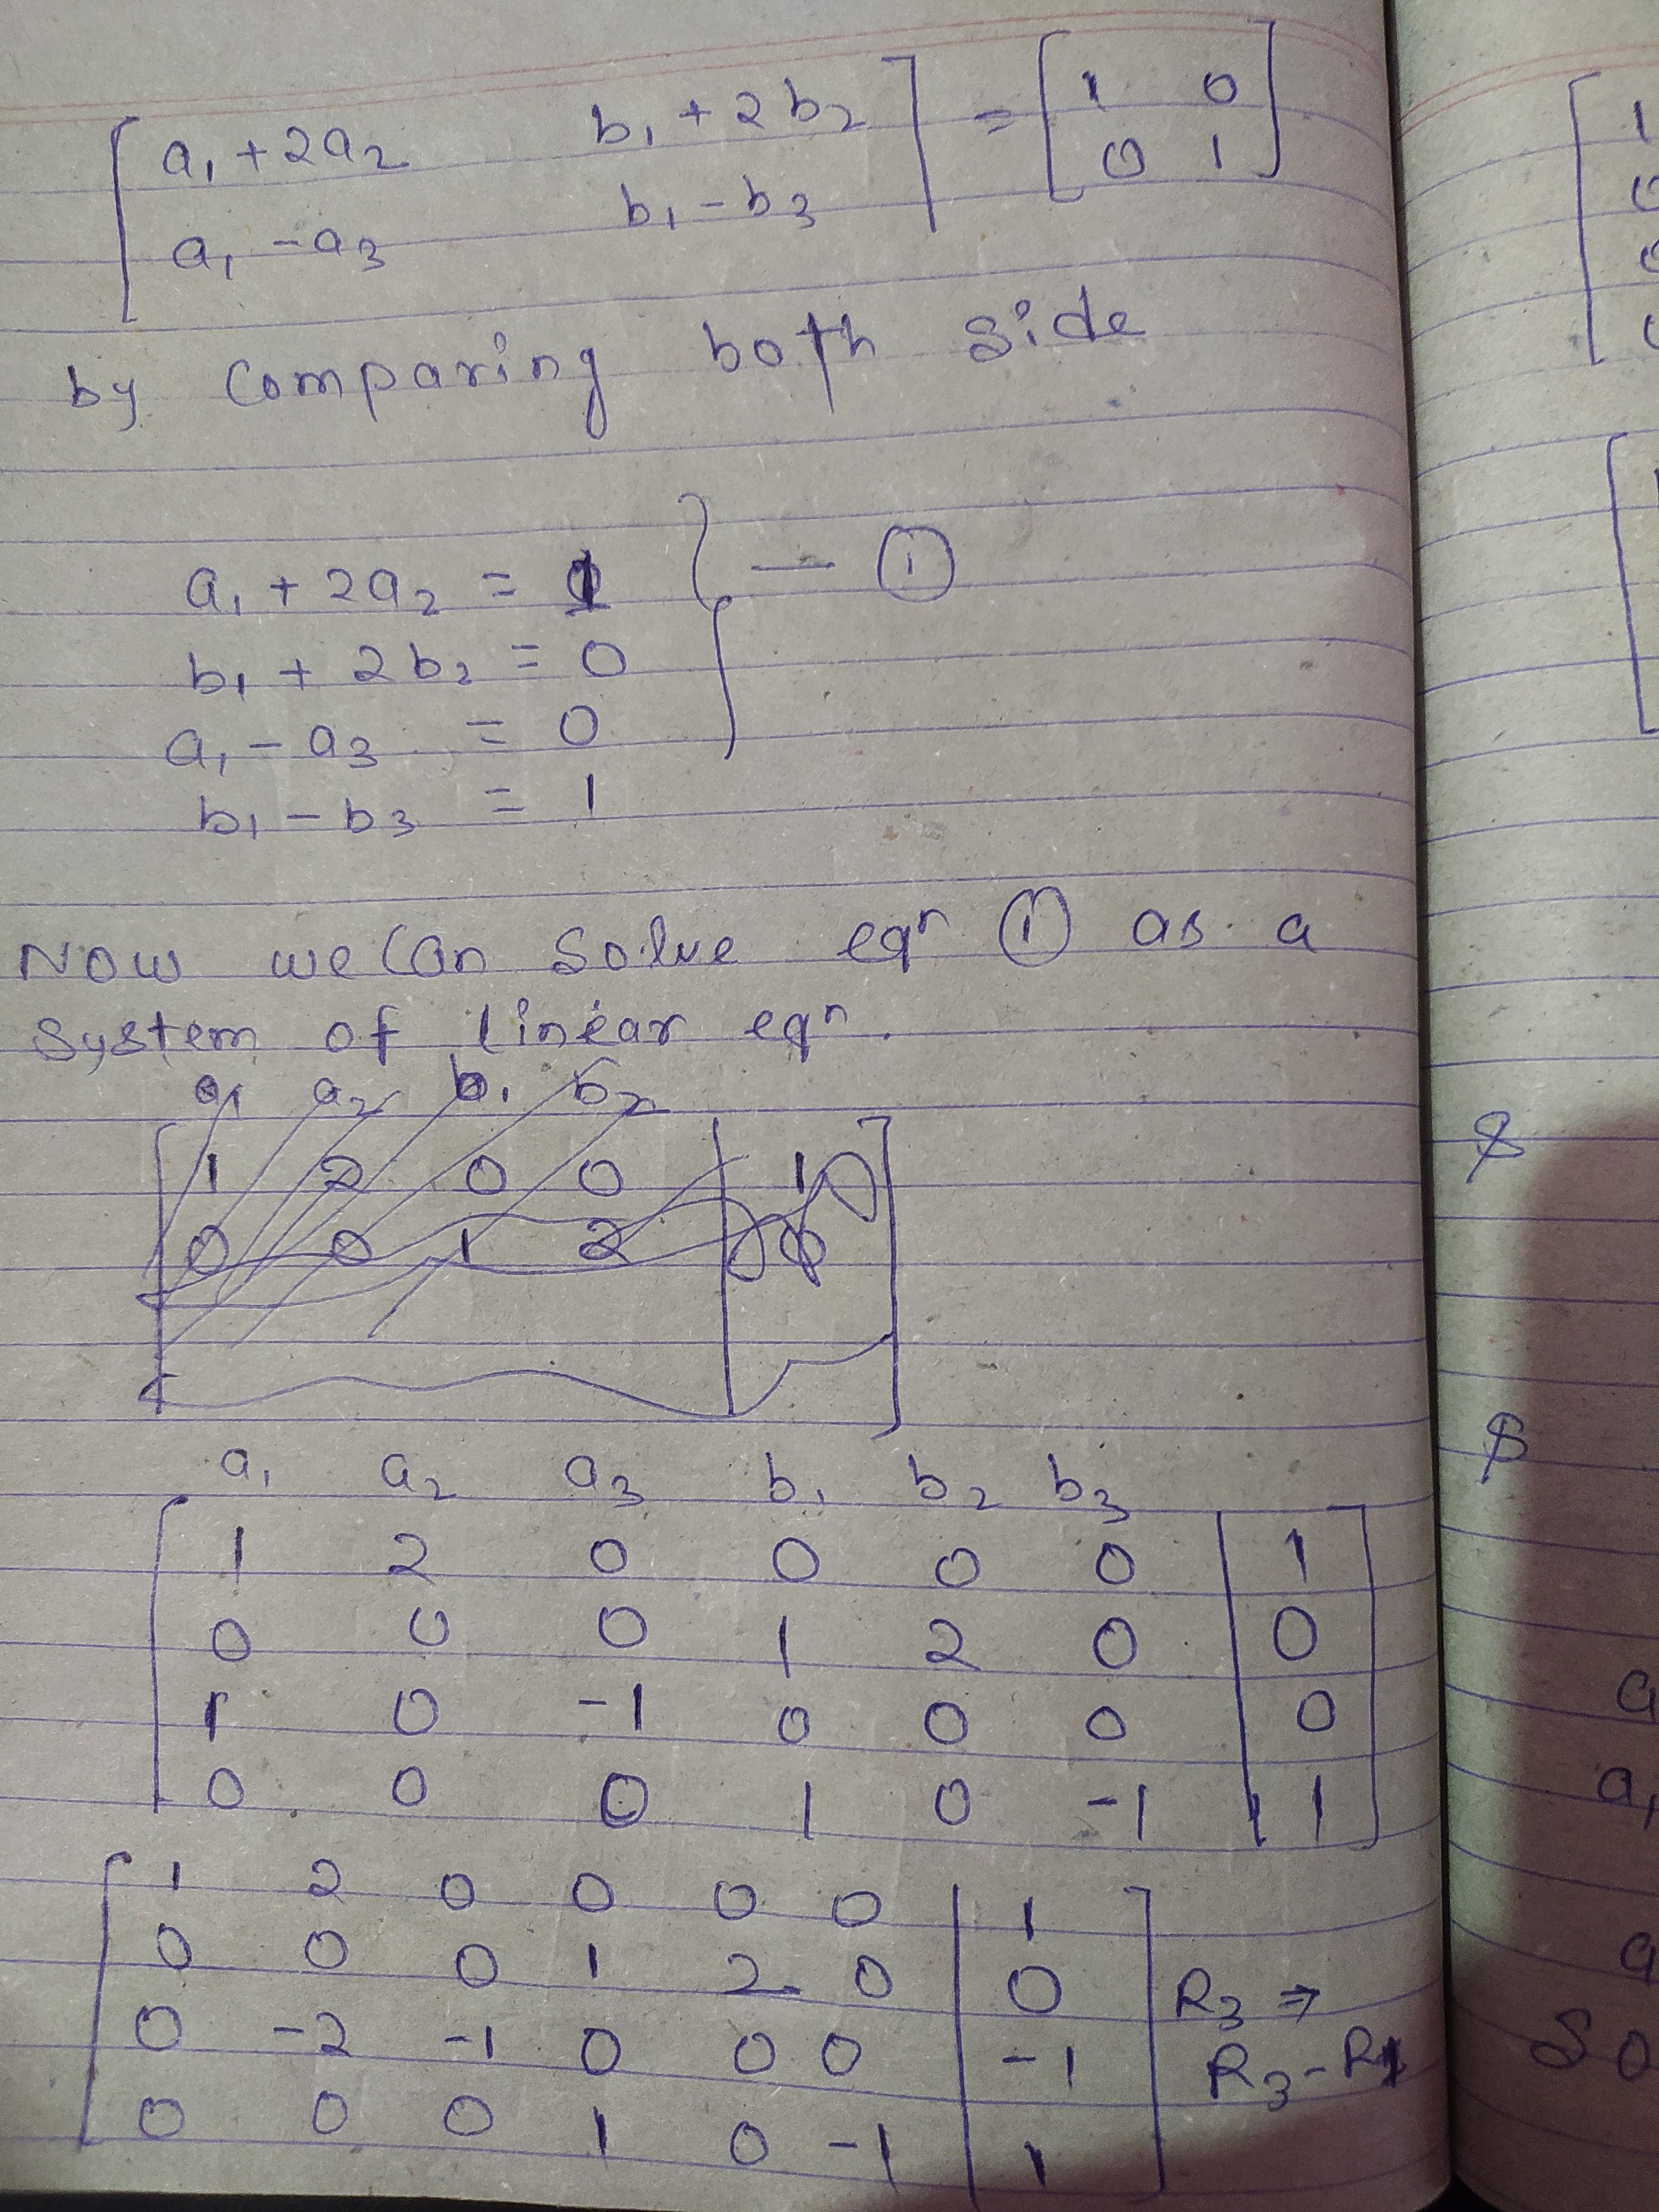 [ a₁ + 2a₂ b₁ + 2b₂ ] = [ 1 0 ]
[ a₁ - a₃ b₁ - b₃ ] [ 0 1 ]
by Comparing both side
a₁ + 2a₂ = 1 } — ①
b₁ + 2b₂ = 0
a₁ - a₃ = 0
b₁ - b₃ = 1
Now we can solve eqⁿ ① as a
system of linear eqⁿ.
a₁ a₂ b₁ b₂
1 2 0 0 | 1
0 0 1 2 |
a₁ a₂ a₃ b₁ b₂ b₃
1 2 0 0 0 0 | 1
0 0 0 1 2 0 | 0
1 0 -1 0 0 0 | 0
0 0 0 1 0 -1 | 1
1 2 0 0 0 0 | 1
0 0 0 1 2 0 | 0 R₃ ⇒
0 -2 -1 0 0 0 | -1 R₃ - R₁
0 0 0 1 0 -1 | 1
1
a
a₁
a
So